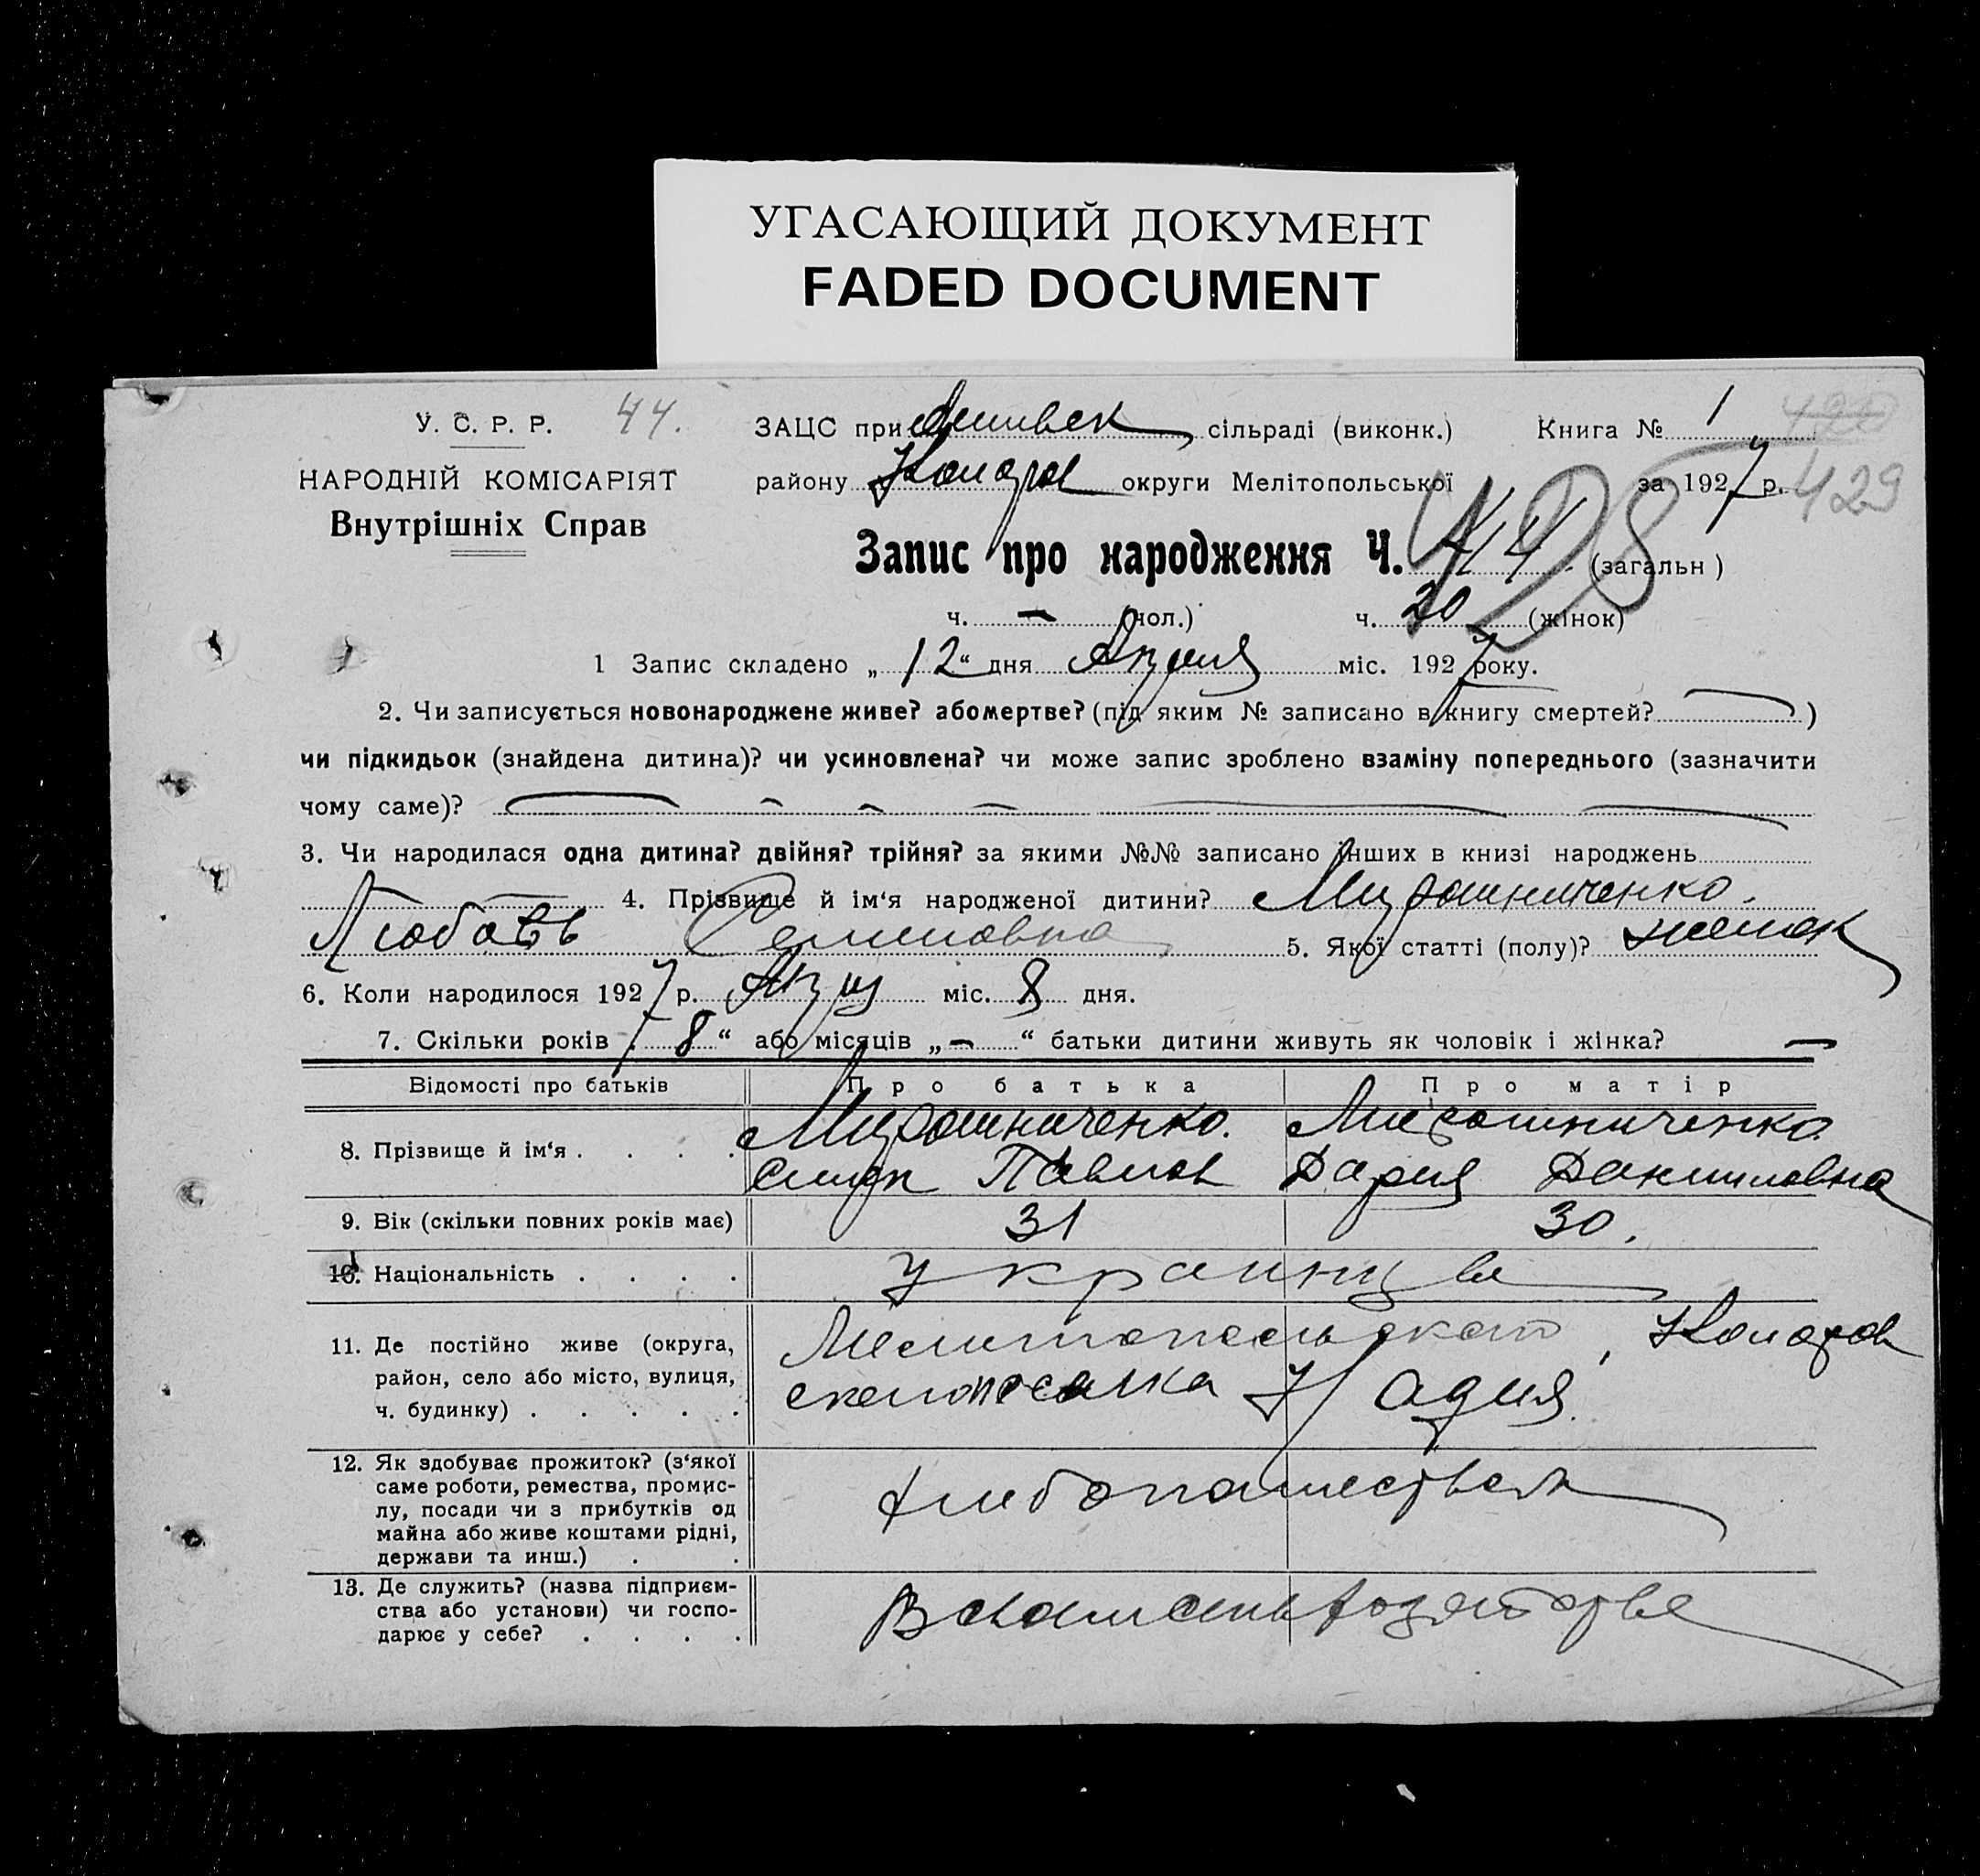 УГАСАЮЩИЙ ДОКУМЕНТ
FADED DOCUMENT
У. С. Р. Р. 44.
НАРОДНІЙ КОМІСАРІЯТ
Внутрішніх Справ
ЗАЦС при сільраді (виконк.) Книга № 1
району округи Мелітопольської за 1927 р. 429
428
Запис про народження Ч. 44 (загальн )
ч. – (чол.) ч. 20 (жінок)
1 Запис складено „ 12 “ дня Апреля міс. 1927 року.
2. Чи записується новонароджене живе? або мертве? (під яким № записано в книгу смертей? )
чи підкидьок (знайдена дитина)? чи усиновлена? чи може запис зроблено взаміну попереднього (зазначити
чому саме)?
3. Чи народилася одна дитина? двійня? трійня? за якими №№ записано інших в книзі народжень
4. Прізвище й ім‘я народженої дитини? Мирошниченко.
Любовь Семеновна 5. Якої статті (полу)? женск
6. Коли народилося 1927 р. Апр міс. 8 дня.
7. Скільки років „ 8 “ або місяців „ – “ батьки дитини живуть як чоловік і жінка? –
Відомості про батьків Про батька Про матір
8. Прізвище й ім‘я . . . . Мирошниченко. Мирошниченко
Павлов Дария Данииловна
9. Вік (скільки повних років має) 31 30.
10. Національність . . . . Украинцы
11. Де постійно живе (округа,
район, село або місто, вулиця,
ч. будинку) . . . . .
Мелитопольского,
Надия.
12. Як здобуває прожиток? (з‘якої
саме роботи, ремества, промис-
лу, посади чи з прибутків од
майна або живе коштами рідні,
держави та инш.) . .
Хлебопашеством
13. Де служить? (назва підприєм-
ства або установи) чи госпо-
дарює у себе? . . . .
В своем хозяйстве